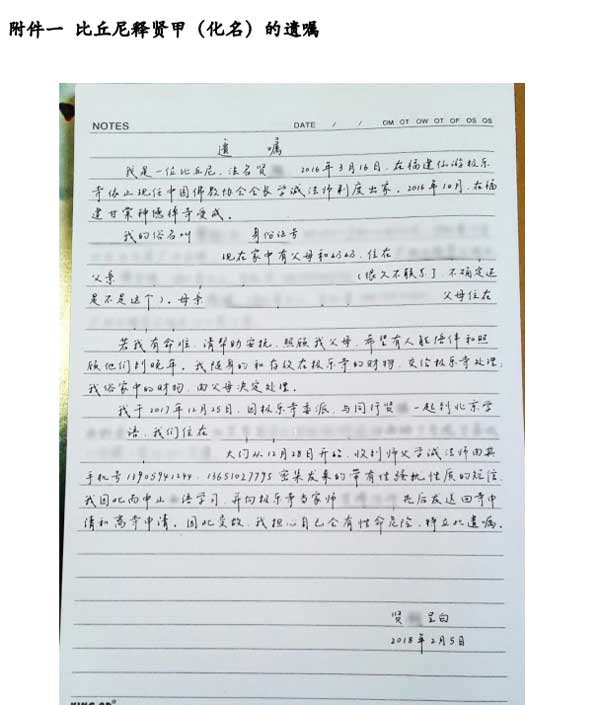 附件一 比丘尼释贤甲（化名）的遗嘱
NOTES DATE / / OM OT OW OT OF OS OS
遗 嘱
我是一位比丘尼，法名贤 2016年3月16日，在福建仙游极乐
寺依止现任中国佛教协会会长学诚法师剃度出家。2016年10月，在福
建甘露神德禅寺受戒。
我的俗名叫 身份证号
现在家中有父母和妈妈，住在
父亲 （很久不联系了，不确定还
是不是这个）。母亲 父母住在
若我有命难，请帮助安抚、照顾我父母，希望有人能陪伴和照
顾他们到晚年。我随身的和存放在极乐寺的财物，交给极乐寺处理；
我俗家中的财物，由父母决定处理。
我于2017年12月25日，因极乐寺委派，与同行贤 一起到北京学
语，我们住在
大约从12月28日开始，收到师父学诚法师由其
手机号13905941244、13651027795密集发来的带有性骚扰性质的短信，
我因此而中止 语学习，并向极乐寺当家师 先后发送回寺申
请和离寺申请。因此变故，我担心自己会有性命危险，特立此遗嘱。
贤 呈白
2018年2月5日